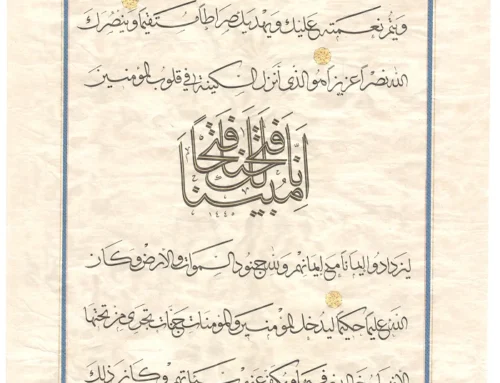 ويتم نعمته عليك ويهديك صراطا مستقيما وينصرك
الله نصرا عزيزا هو الذي أنزل السكينة في قلوب المؤمنين
إنا فتحنا لك فتحا مبينا
١٤٤٥
ليزدادوا إيمانا مع إيمانهم ولله جنود السموات والأرض وكان
الله عليما حكيما ليدخل المؤمنين والمؤمنات جنات تجري من تحتها
الأنهار خالدين فيها ويكفر عنهم سيئاتهم وكان ذلك